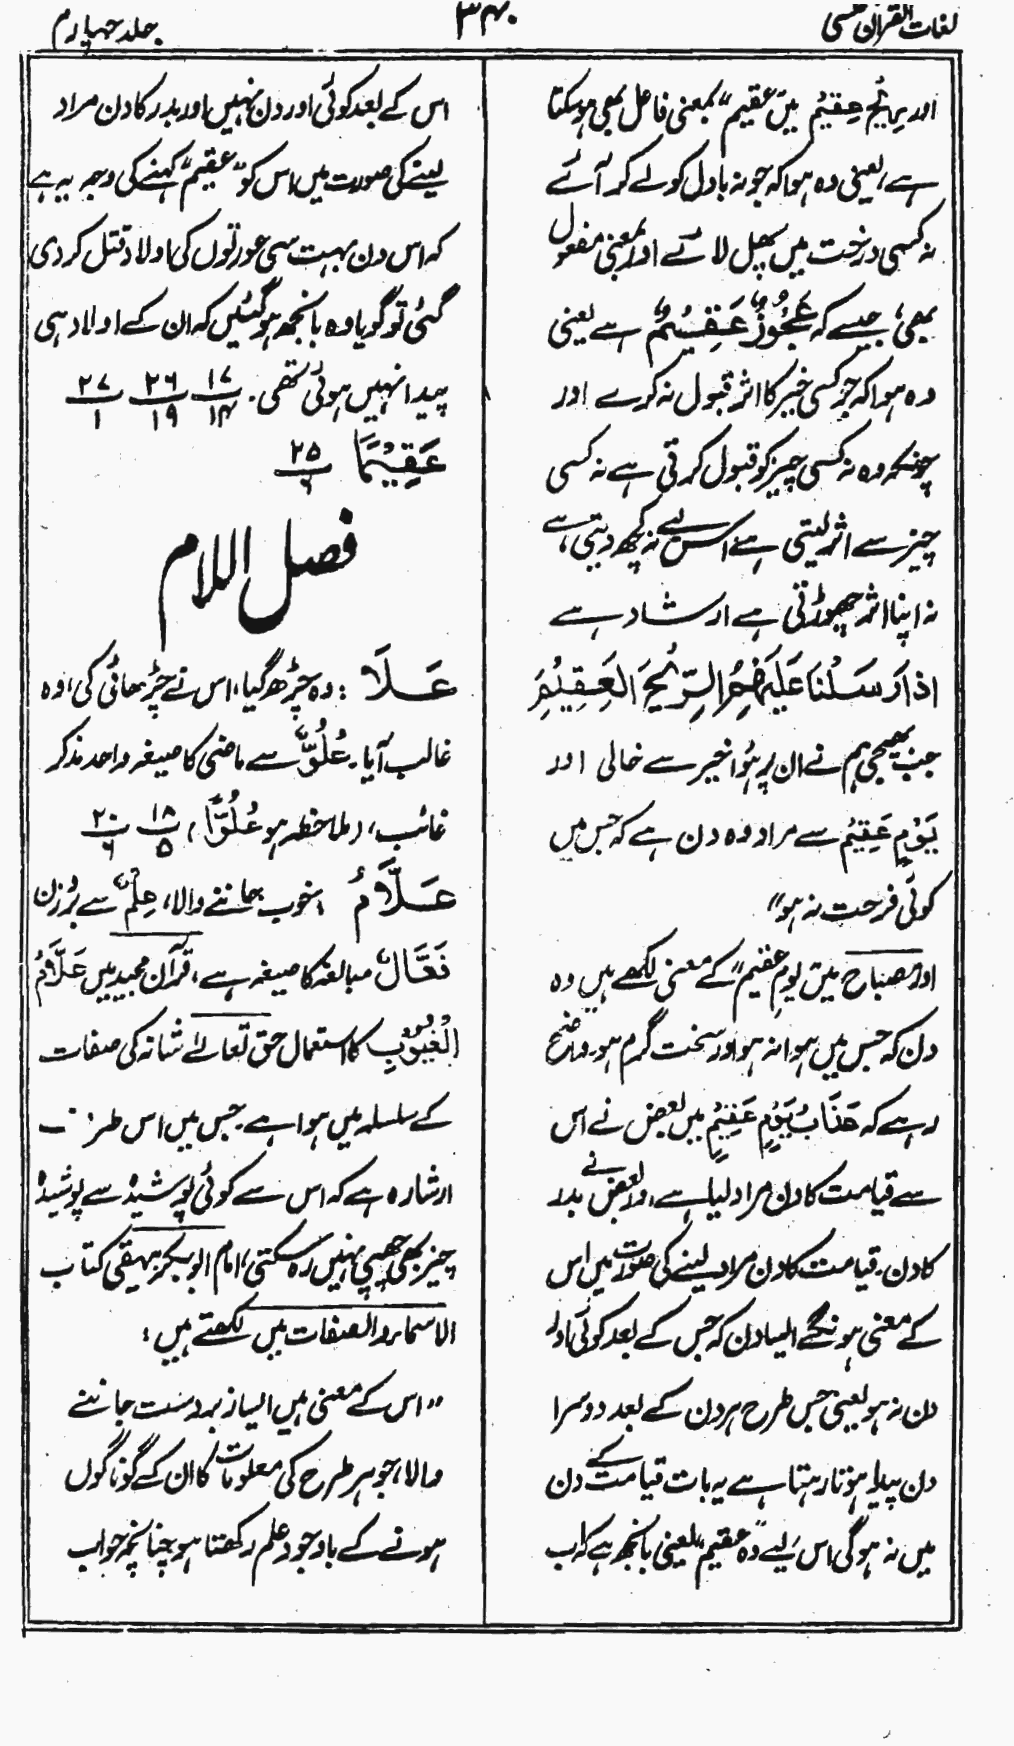 لغات القرآن حسی
۳۴۰
جلد چہارم
اور رِیحٌ عَقِیْمٌ میں عقیم" بمعنی فاعل بھی ہوسکتا
ہے، یعنی وہ ہوا کہ جو نہ بادل کو لے کر آئے
نہ کسی درخت میں پھل لائے اور بمعنی مفعول
بھی، جیسے کہ عَجُوْزٌ عَقِیْمٌ ہے یعنی
وہ ہوا کہ جو کسی خیر کا اثر قبول نہ کرے اور
چونکہ وہ نہ کسی چیز کو قبول کرتی ہے نہ کسی
چیز سے اثر لیتی ہے اس لیے نہ کچھ دیتی ہے،
نہ اپنا اثر چھوڑتی ہے ارشاد ہے
اِذْ اَرْسَلْنَا عَلَیْهِمُ الرِّیْحَ الْعَقِیْمَ
جب بھیجی ہم نے ان پر ہوا خیر سے خالی اور
یَوْمٍ عَقِیْمٍ سے مراد وہ دن ہے کہ جس میں
کوئی فرحت نہ ہو"
اور مصباح میں یوم عقیم" کے معنی لکھے ہیں وہ
دن کہ جس میں ہوا نہ ہو اور سخت گرم ہو۔ واضح
رہے کہ عَذَابُ یَوْمٍ عَقِیْمٍ میں بعض نے اس
سے قیامت کا دن مراد لیا ہے، اور بعض نے بدر
کا دن۔ قیامت کا دن مراد لینے کی صورت میں اس
کے معنی ہونگے ایسا دن کہ جس کے بعد کوئی اور
دن نہ ہو یعنی جس طرح ہر دن کے بعد دوسرا
دن پیدا ہوتا رہتا ہے یہ بات قیامت کے دن
میں نہ ہوگی اس لیے وہ "عقیم" یعنی بانجھ ہے کہ اب
اس کے بعد کوئی اور دن نہیں اور بدر کا دن مراد
لینے کی صورت میں اس کو "عقیم" کہنے کی وجہ یہ ہے
کہ اس دن بہت سی عورتوں کی اولاد قتل کر دی
گئی تو گویا وہ بانجھ ہو گئیں کہ ان کے اولاد ہی
پیدا نہیں ہوئی تھی۔ ۱۷/۱۴ ۲۶/۱۹ ۲۷/۱
عَقِیْمًا ۲۵/۶
فصل اللام
عَلَا : وہ چڑھ گیا، اس نے چڑھائی کی، وہ
غالب آیا۔ عُلُوٌّ سے ماضی کا صیغہ واحد مذکر
غائب، (ملاحظہ ہو عُلُوًّا) ۱۸/۵ ۲۰/۶
عَلَّامُ : خوب جاننے والا، عِلْمٌ سے بروزن
فَعَّالٌ مبالغہ کا صیغہ ہے، قرآن مجید میں عَلَّامُ
الْغُیُوْبِ کا استعمال حق تعالےٰ شانہ کی صفات
کے سلسلہ میں ہوا ہے۔ جس میں اس طرف
ارشارہ ہے کہ اس سے کوئی پوشیدہ سے پوشیدہ
چیز بھی چھپی نہیں رہ سکتی، امام ابوبکر بیہقی کتاب
الاسماء والصفات میں لکھتے ہیں :
"اس کے معنی ہیں ایسا زبردست جاننے
والا، جو ہر طرح کی معلومات کا ان کے گوناگوں
ہونے کے باوجود علم رکھتا ہو چنانچہ جواب